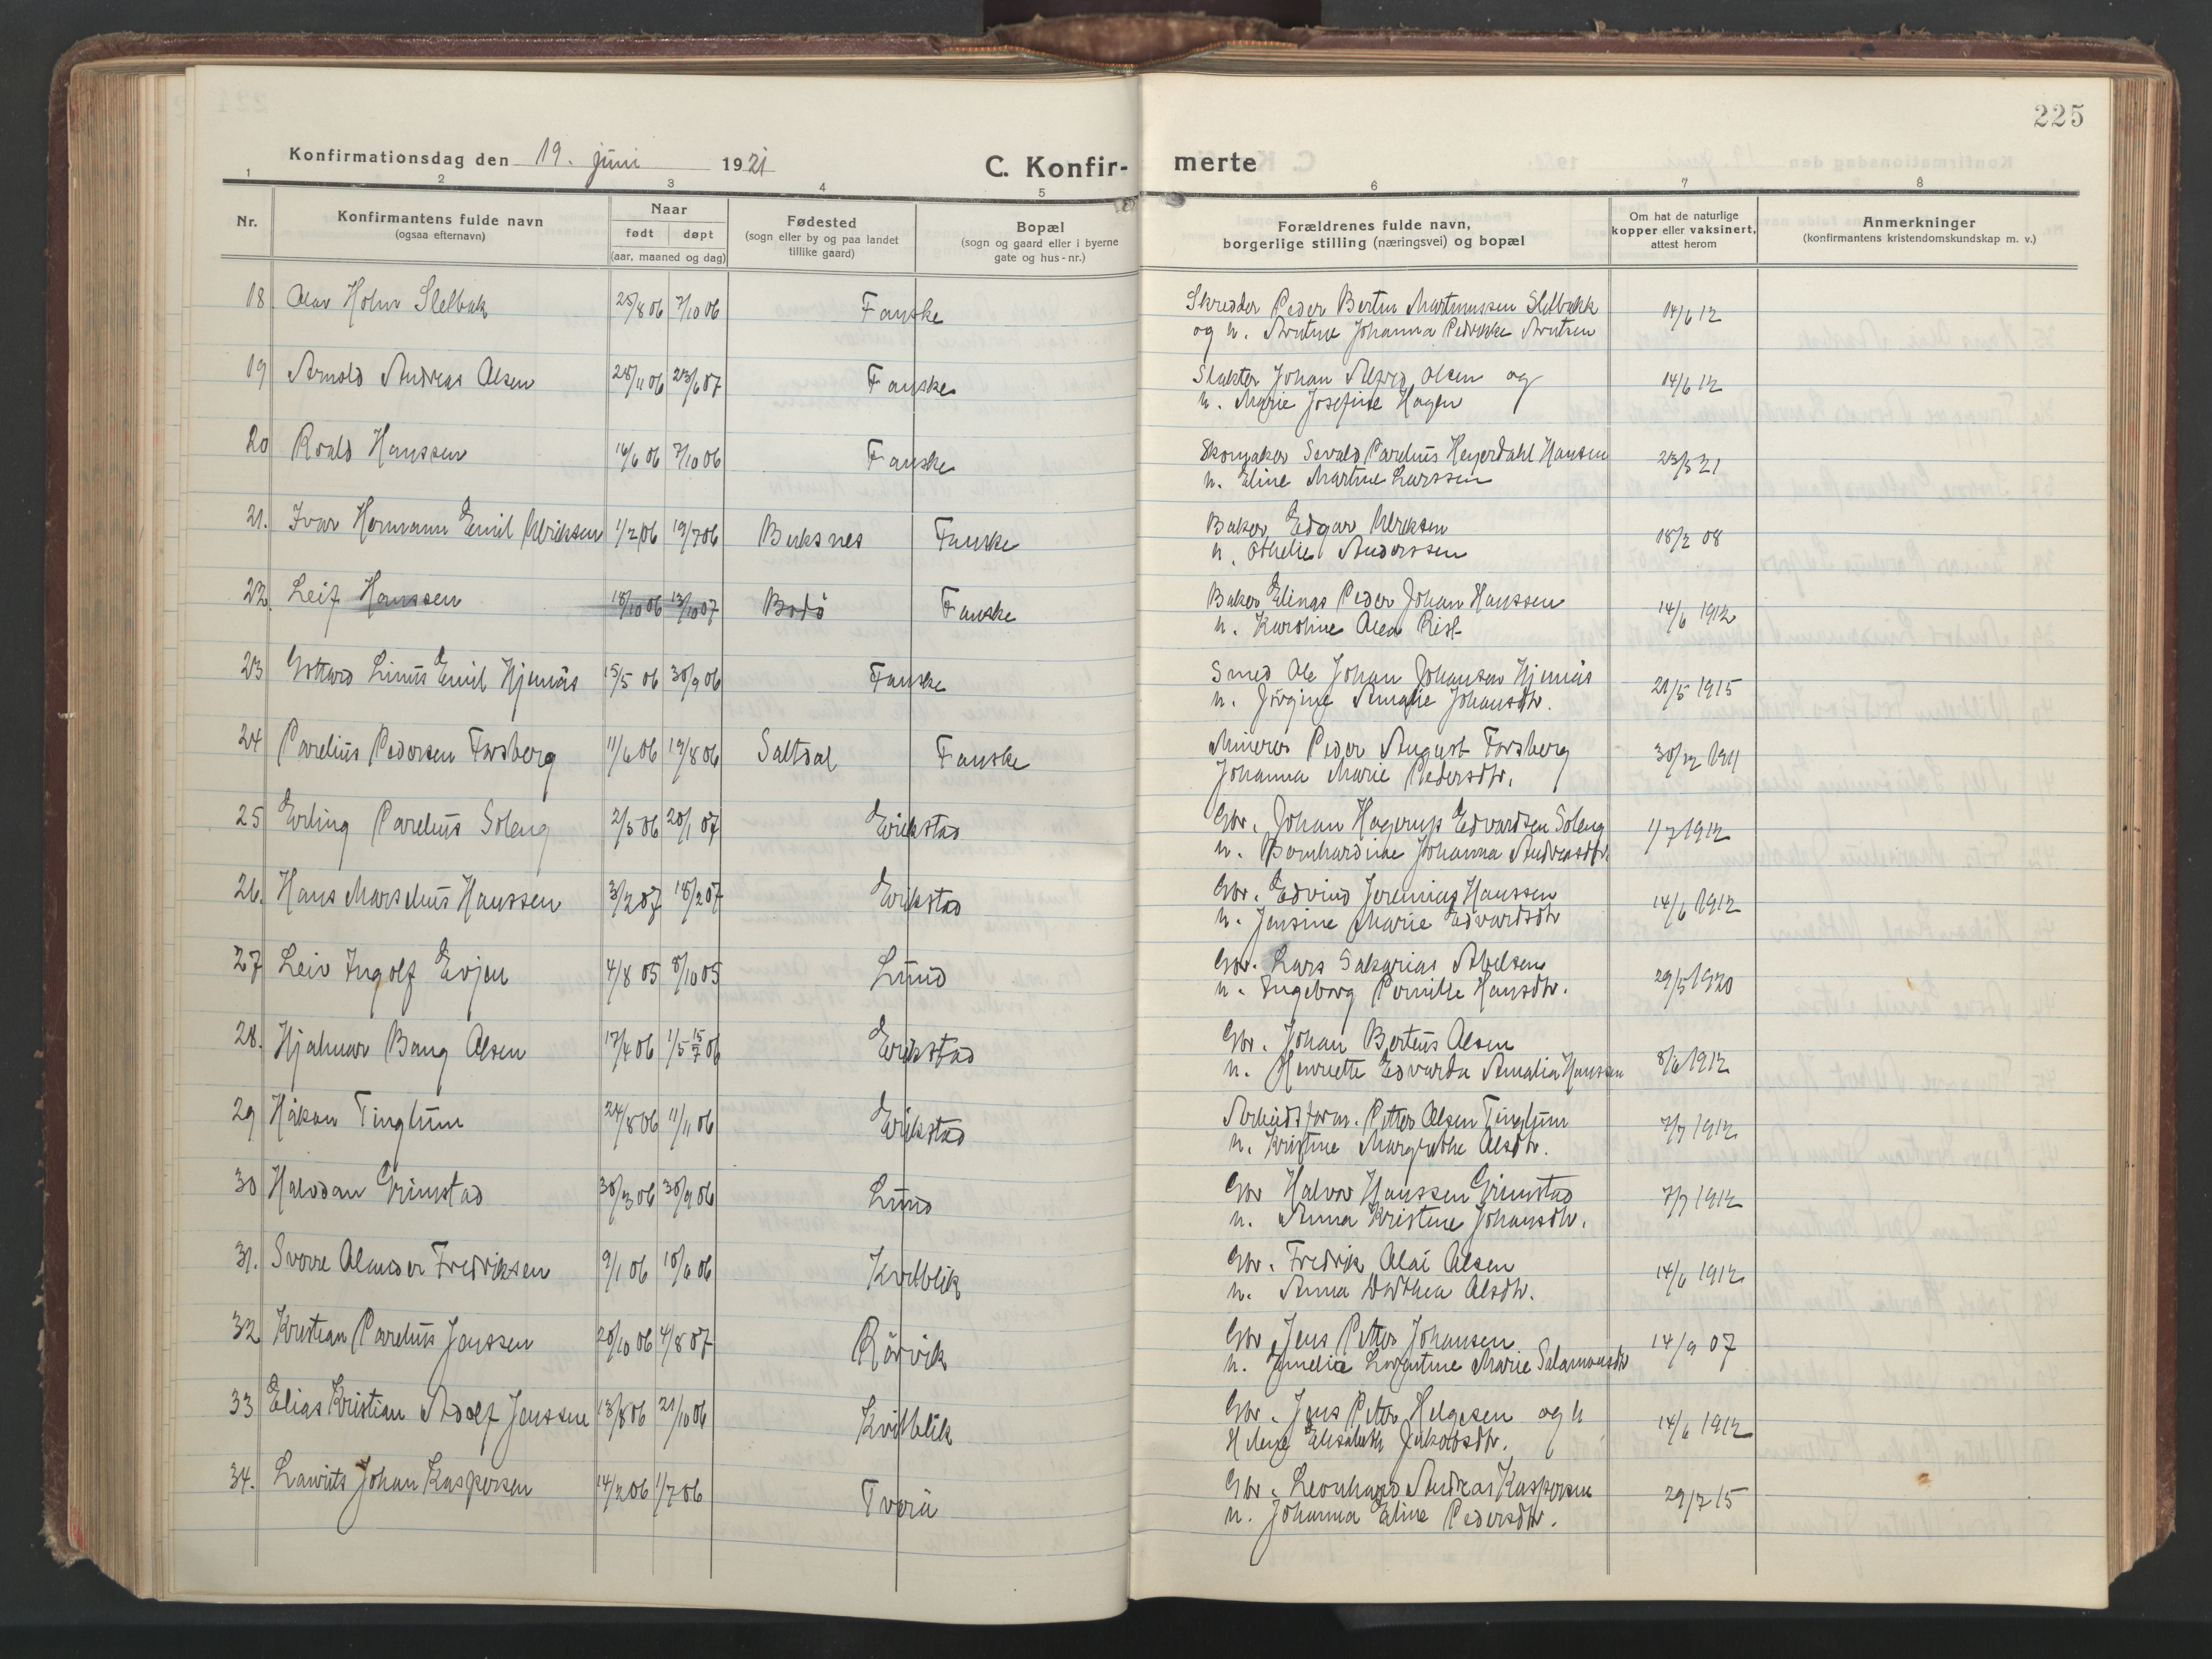 225
Konfirmationsdag den 19. juni 1921
C. Konfir-merte
1 2 3 4 5 6 7 8
Nr.
Konfirmantens fulde navn
(ogsaa efternavn)
Naar
født døpt
(aar, maaned og dag)
Fødested
(sogn eller by og paa landet
tillike gaard)
Bopæl
(sogn og gaard eller i byerne
gate og hus-nr.)
Forældrenes fulde navn,
borgerlige stilling (næringsvei) og bopæl
Om hat de naturlige
kopper eller vaksinert,
attest herom
Anmerkninger
(konfirmantens kristendomskundskap m. v.)
18. Olav Holm Slelbak 25/8 06 7/10 06 Fauske Skredder Peder Bertin Martinussen Slelbakk 14/6 12
og h. Arntine Johanna Pedrikke Arntsen
19 Arnold Andreas Olsen 28/11 06 23/6 07 Fauske Slakter Johan Alfred Olsen og 14/6 12
h. Marie Josefine Hagen
20 Roald Hanssen 16/6 06 7/10 06 Fauske Skomaker Sevald Parelius Heyerdahl Hansen 23/3 21
h. Eline Martine Larssen
21. Ivar Hermann Emil Ulriksen 1/2 06 19/7 06 Buksnes Fauske Baker Edgar Ulriksen 18/2 08
h. Othelie Anderssen
22. Leif Hanssen 18/10 06 13/10 07 Bodö Fauske Baker Elinas Peder Johan Hanssen 14/6 1912
h. Karoline Olea Rist
23 Gottard Linus Emil Hjemås 15/5 06 30/9 06 Fauske Smed Ole Johan Johansen Hjemås 21/5 1915
h. Jörgine Amalie Johansdtr.
24 Parelius Pedersen Forsberg 11/6 06 19/8 06 Saltdal Fauske Minerer Peder August Forsberg 30/12 1911
Johanna Marie Pedersdtr.
25 Erling Parelius Soleng 2/5 06 20/1 07 Erikstad Gbr. Johan Hagerup Edvardsen Soleng 1/7 1912
h. Bernhardine Johanna Andreasdtr.
26. Hans Marselius Hanssen 3/2 07 18/2 07 Erikstad Gbr. Edvind Jeremias Hanssen 14/6 1912
h. Jensine Marie Edvardsdtr
27 Leiv Ingolf Evjen 4/8 05 8/10 05 Lund Gbr. Lars Sakarias Abelsen 29/5 1920
h. Ingeborg Pernille Hansdtr.
28. Hjalmar Bang Olsen 17/4 06 1/5 15/7 06 Erikstad Gbr. Johan Berteus Olsen 8/6 1912
h. Henriette Edvarda Amalia Hanssen
29 Håkon Tinghum 24/8 06 11/11 06 Erikstad Arbeidsform. Petter Olsen Tinghum 7/7 1912
h. Kristine Margrethe Olsdtr.
30 Halvdan Grimstad 30/3 06 30/9 06 Lund Gbr Halvor Hanssen Grimstad 7/7 1912
h. Anna Kristine Johansdtr.
31. Sverre Alexander Fredriksen 9/1 06 10/6 06 Kvitblik Gbr. Fredrik Olai Olsen 14/6 1912
h. Anna Dorthea Olsdtr.
32 Kristian Parelius Jenssen 20/10 06 4/8 07 Rörvik Gbr Jens Petter Johansen 14/9 07
h. Emelie Lorentine Marie Salamonsdtr
33 Elias Kristian Adolf Jenssen 13/8 06 21/10 06 Kvitblik Gbr. Jens Peter Helgesen og h 14/6 1912
Helene Elisabeth Jakobsdtr.
34. Laurits Johan Kaspersen 14/2 06 1/7 06 Tverå Gbr. Leonhard Andreas Kaspersen 29/7 15
h. Johanna Eline Pedersdtr.